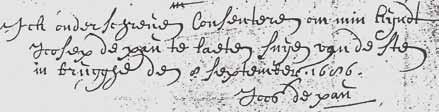 Ick onderschreven Consenteren om min kijndt
Joosep de pau te laeten snijen van de sten
in brugghe den 8 september 1686.
Joos de pau